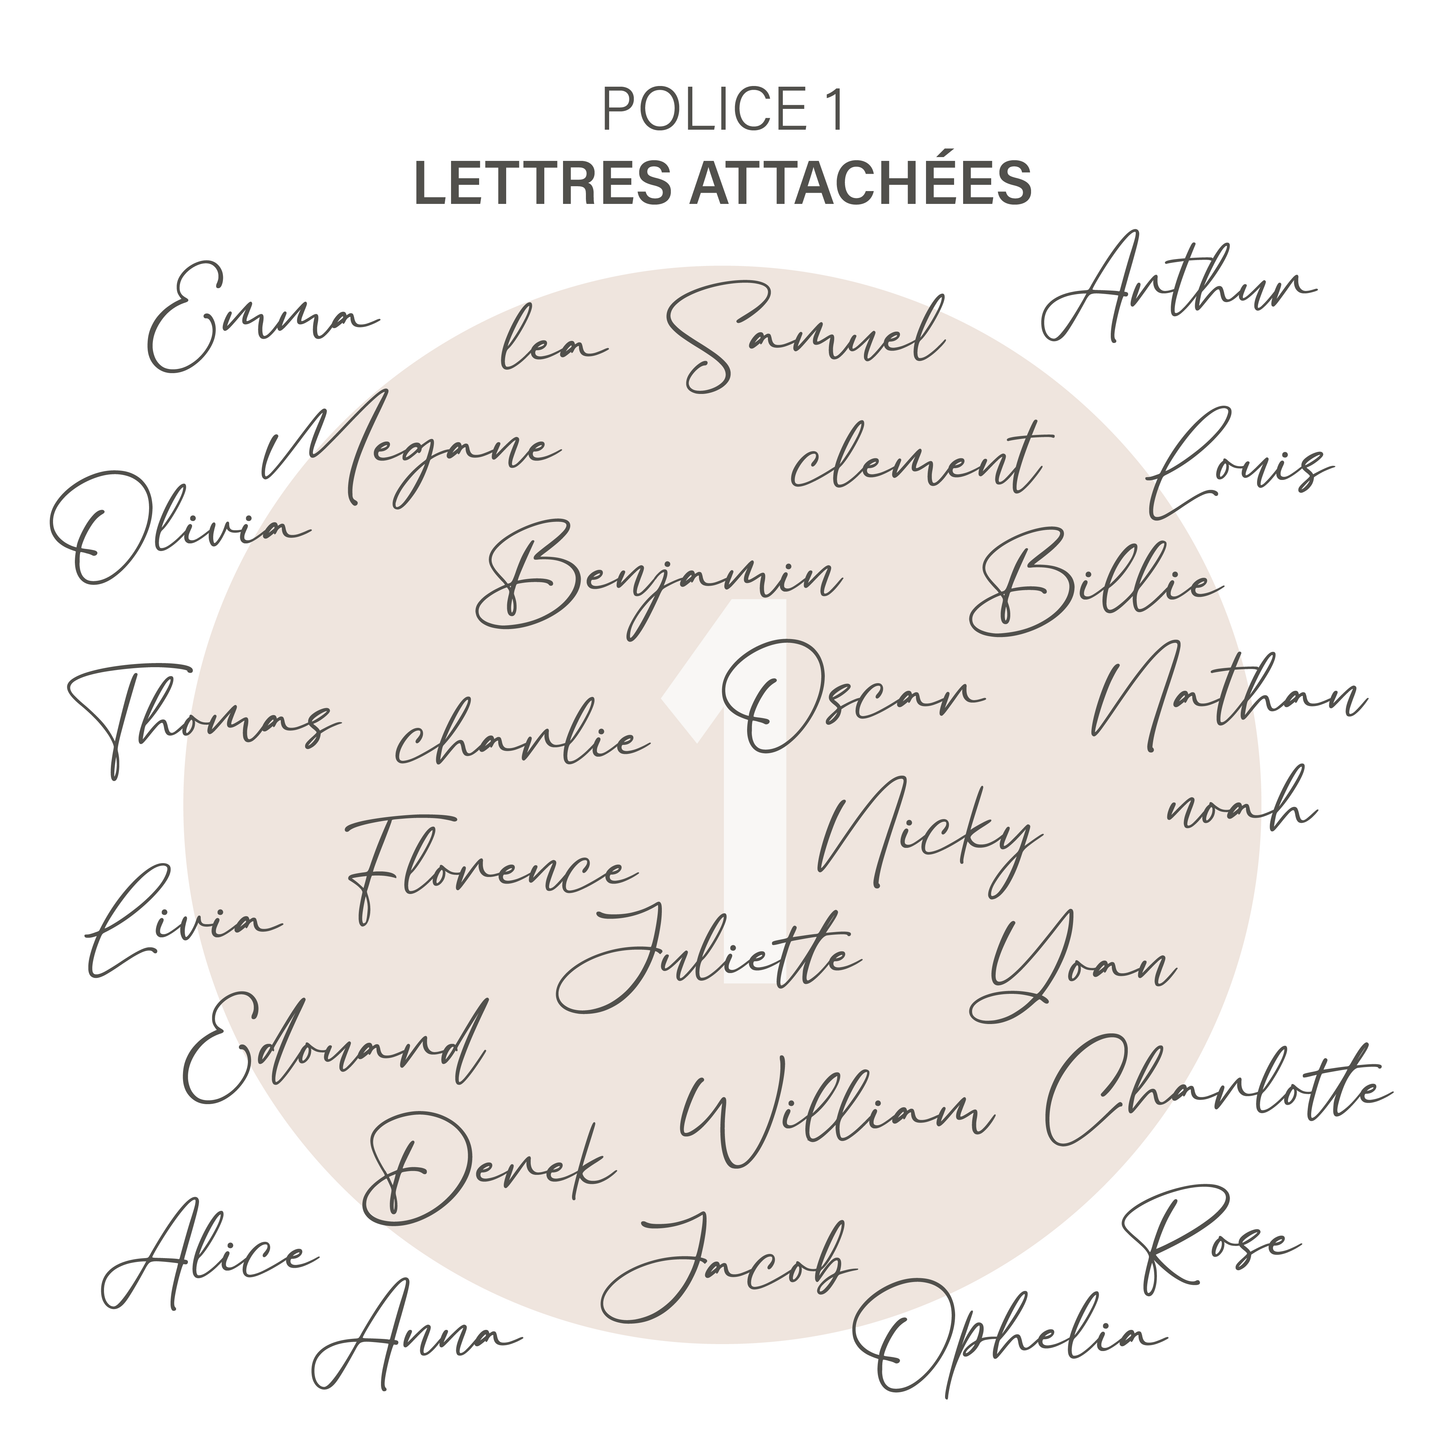 POLICE 1
LETTRES ATTACHÉES
Emma
lea
Samuel
Arthur
Megane
clement
Louis
Olivia
Benjamin
Billie
Thomas
charlie
Oscar
Nathan
1
Florence
Nicky
noah
Livia
Juliette
Yoan
Edouard
William
Charlotte
Derek
Alice
Jacob
Rose
Anna
Ophelia